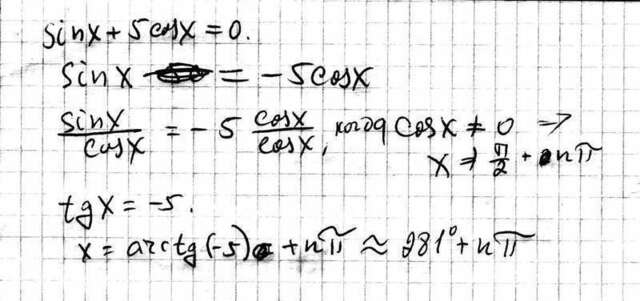 sinx + 5cosx = 0.
sinx = -5cosx
sinx/cosx = -5 cosx/cosx, когда cosx ≠ 0 ⇒
x ≠ π/2 + nπ
tgx = -5.
x = arctg(-5) + nπ ≈ 281° + nπ